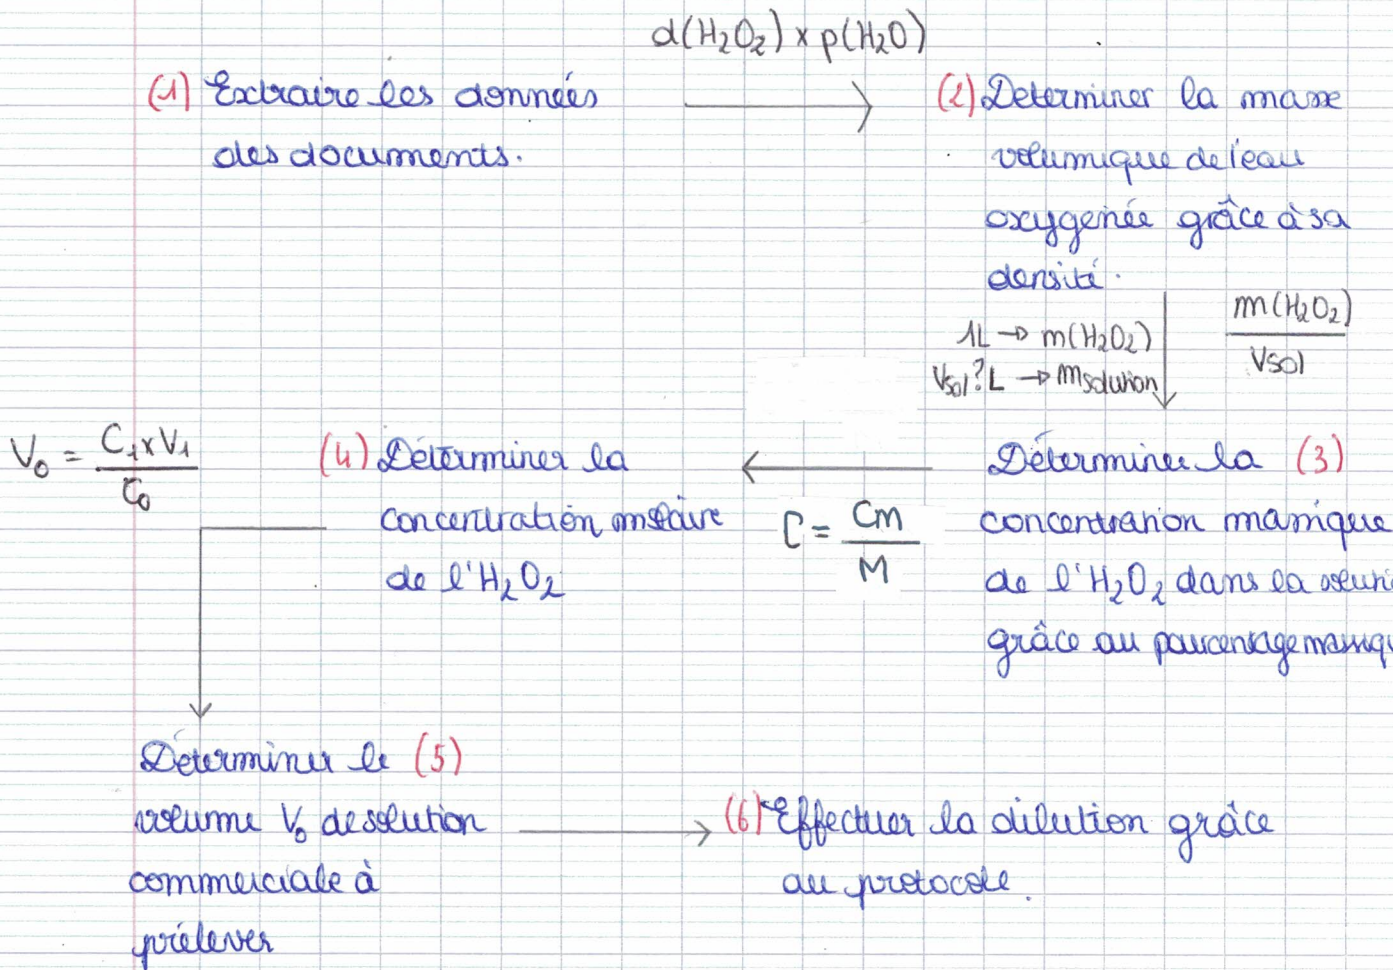 d(H₂O₂) × ρ(H₂O)
(1) Extraire les données
des documents.
(2) Determiner la masse
volumique de l'eau
oxygenée grâce à sa
densité.
1L → m(H₂O₂)
Vsol?L → msolution
m(H₂O₂)
Vsol
Déterminer la (3)
concentration massique
de l'H₂O₂ dans la soluti
grâce au pourcentage massiqu
C = Cm
M
(4) Déterminer la
concentration molaire
de l'H₂O₂
V₀ = C₁ × V₁
C₀
Déterminer le (5)
volume V₀ de solution
commerciale à
prélever
(6) Effectuer la dilution grâce
au protocole.